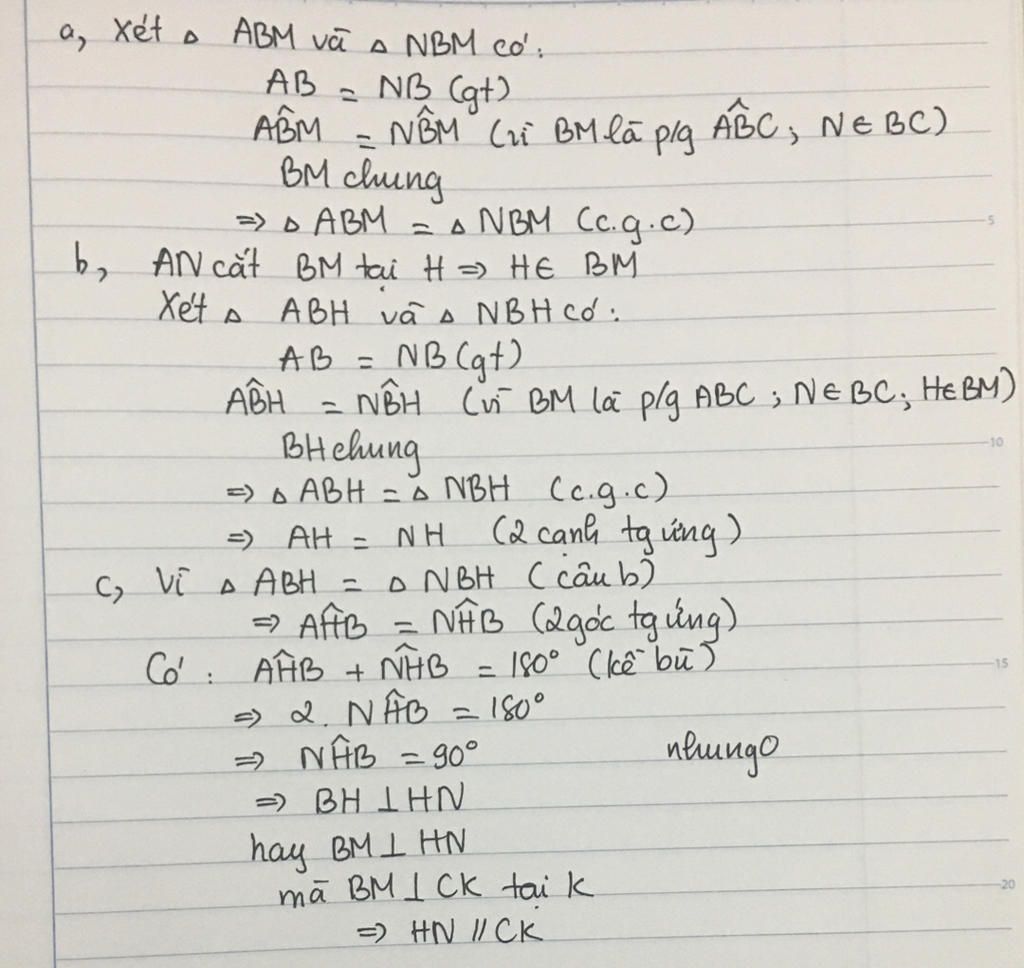 a, Xét ▵ ABM và ▵ NBM có:
AB = NB (gt)
AB̂M = NB̂M (vì BM là p/g AB̂C; N ∈ BC)
BM chung
=> ▵ ABM = ▵ NBM (c.g.c)
5
b, AN cắt BM tại H => H ∈ BM
Xét ▵ ABH và ▵ NBH có:
AB = NB (gt)
AB̂H = NB̂H (vì BM là p/g ABC; N ∈ BC; H ∈ BM)
BH chung
10
=> ▵ ABH = ▵ NBH (c.g.c)
=> AH = NH (2 cạnh tg ứng)
c, Vì ▵ ABH = ▵ NBH (câu b)
=> AĤB = NĤB (2 góc tg ứng)
Có: AĤB + NĤB = 180° (kề bù)
15
=> 2. NĤB = 180°
=> NĤB = 90° nhungo
=> BH ⊥ HN
hay BM ⊥ HN
mà BM ⊥ CK tại K
20
=> HN // CK